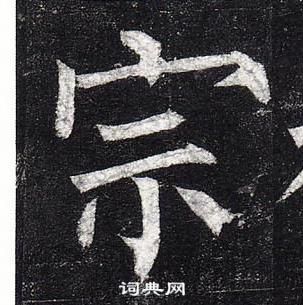 宗
词典网